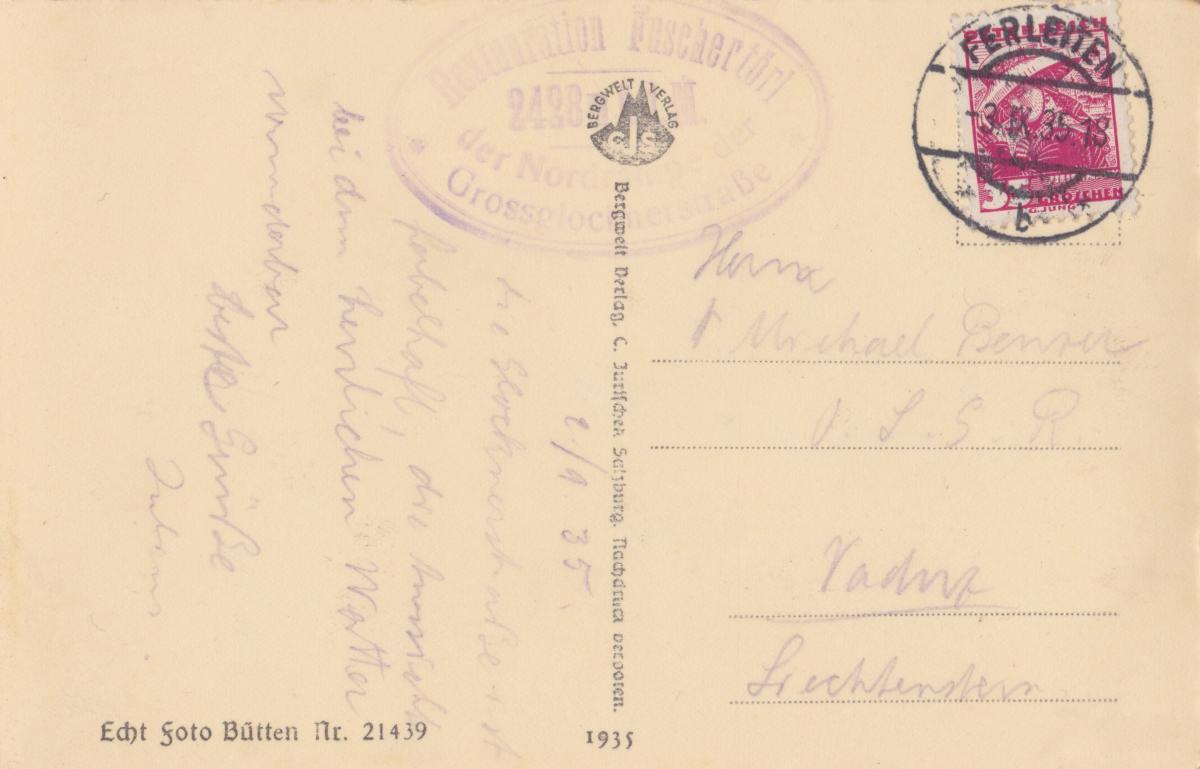 Restauration Fuschertörl
2428 m ü. M.
der Nordrampe der
Grossglocknerstraße
BERGWELT VERLAG
CJS
ÖSTERREICH
GROSCHEN
G. JUNG
FERLEITEN
-3.IX.35.18
b
2/9. 35.
die Glocknerstraße ist
fabelhaft, die Aussicht
bei dem herrlichen Wetter
wunderbar
beste Grüße
Herrn
Michael
Vaduz
Liechtenstein
Bergwelt Verlag, C. Jurischek Salzburg. Nachdruck verboten.
Echt Foto Bütten Nr. 21439
1935